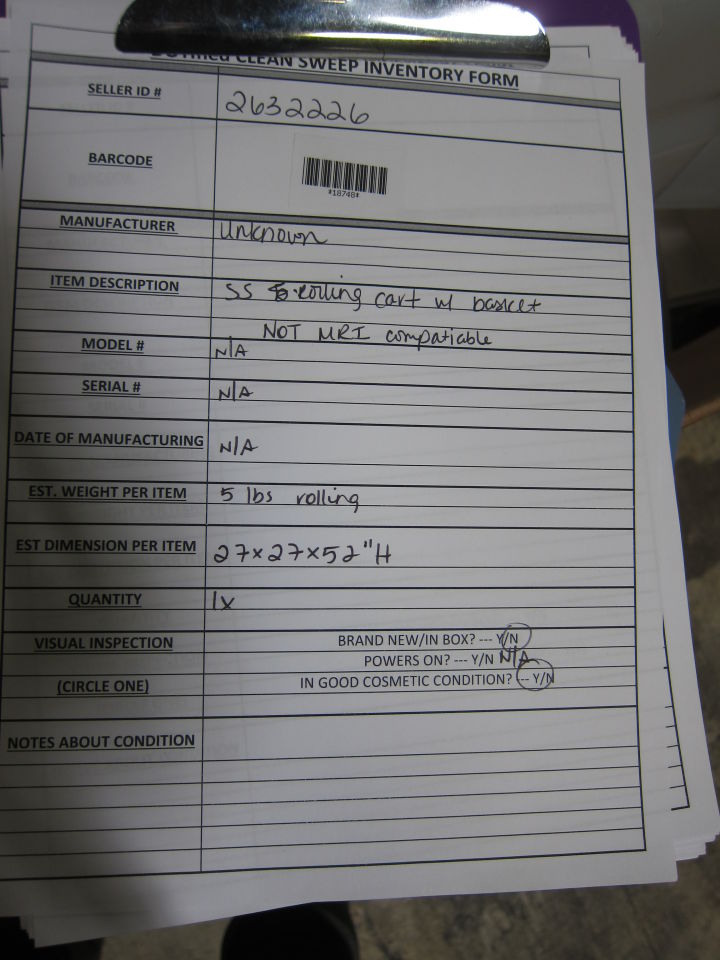 DOTmed CLEAN SWEEP INVENTORY FORM
SELLER ID # 2632226
BARCODE
*18748*
MANUFACTURER Unknown
ITEM DESCRIPTION SS rolling cart w/ basket
NOT MRI compatiable
MODEL # N/A
SERIAL # N/A
DATE OF MANUFACTURING N/A
EST. WEIGHT PER ITEM 5 lbs rolling
EST DIMENSION PER ITEM 27x27x52"H
QUANTITY 1x
VISUAL INSPECTION BRAND NEW/IN BOX? --- Y/N
POWERS ON? --- Y/N N/A
(CIRCLE ONE) IN GOOD COSMETIC CONDITION? --- Y/N
NOTES ABOUT CONDITION